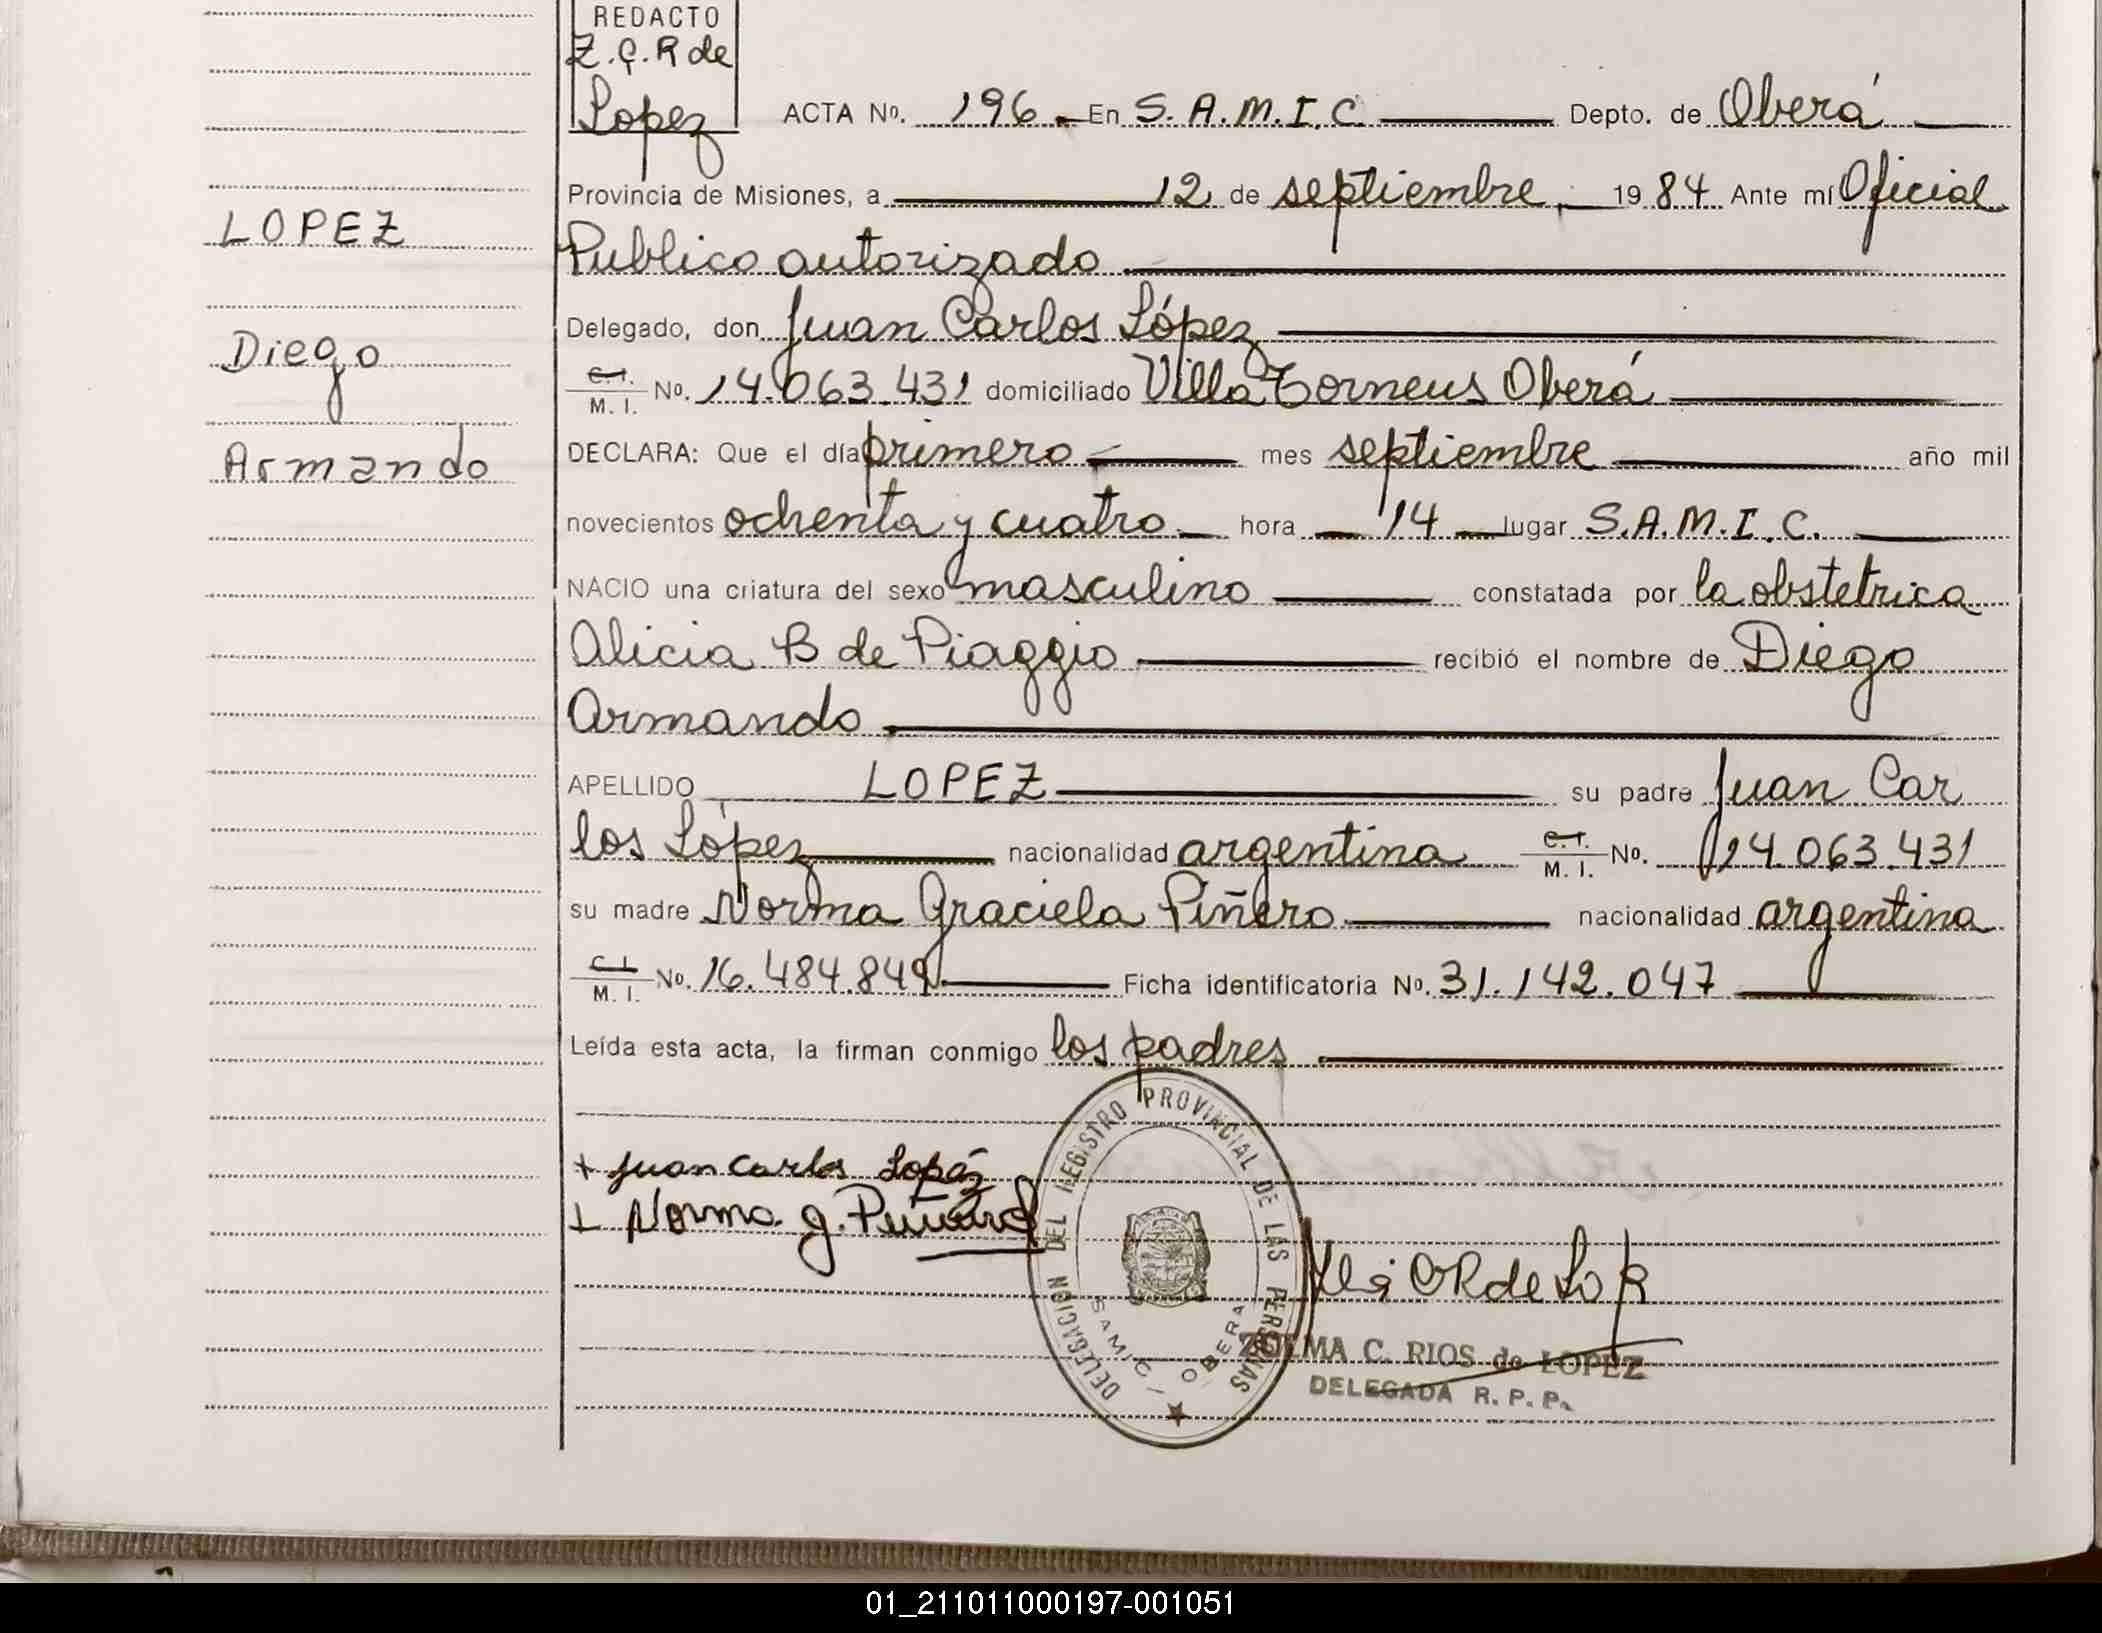 REDACTO
Z.C.R de
Lopez
ACTA Nº. 196. En S.A.M.I.C. Depto. de Oberá
Provincia de Misiones, a 12 de septiembre 1984 Ante mí Oficial
Publico autorizado
Delegado, don Juan Carlos López
C.I. M.I. Nº. 14.063.431 domiciliado Villa Torneus Oberá
DECLARA: Que el día primero mes septiembre año mil
novecientos ochenta y cuatro hora 14 lugar S.A.M.I.C.
NACIO una criatura del sexo masculino constatada por la obstetrica
Alicia B de Piaggio recibió el nombre de Diego
Armando
APELLIDO LOPEZ su padre Juan Car
los López nacionalidad argentina C.I. M.I. Nº. 14.063.431
su madre Norma Graciela Piñero nacionalidad argentina
C.I. M.I. Nº. 16.484.849 Ficha identificatoria Nº. 31.142.047
Leída esta acta, la firman conmigo los padres
LOPEZ
Diego
Armando
+ Juan Carlos López
+ Norma. G.
DELEGACION DEL REGISTRO PROVINCIAL DE LAS PERSONAS
SAMIC - OBERA
ZULMA C. RIOS de LOPEZ
DELEGADA R. P. P.
01_211011000197-001051